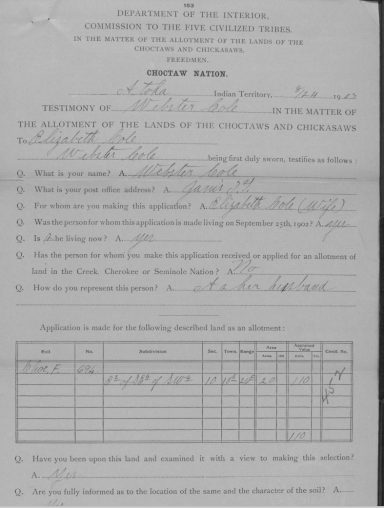 DEPARTMENT OF THE INTERIOR,
COMMISSION TO THE FIVE CIVILIZED TRIBES.
IN THE MATTER OF THE ALLOTMENT OF THE LANDS OF THE
CHOCTAWS AND CHICKASAWS,
FREEDMEN.
CHOCTAW NATION.
Atoka Indian Territory, 190
TESTIMONY OF Webster Cole IN THE MATTER OF
THE ALLOTMENT OF LANDS OF THE CHOCTAWS AND CHICKASAWS
To Elizabeth Cole
Webster Cole being first duly sworn, testifies as follows:
Q. What is your name? A. Webster Cole
Q. What is your post office address? A.
Q. For whom are you making this application? A. Elizabeth Cole (Wife)
Q. Was the person for whom this application is made living on September 25th, 1902? A. yes
Q. Is she living now? A. yes
Q. Has the person for whom you make this application received or applied for an allotment of
land in the Creek, Cherokee or Seminole Nation? No
Q. How do you represent this person? A. As her husband
Application is made for the following described land as an allotment:
Roll No. Subdivision Sec. Town. Range Area Appraised Value Certif. No.
Choc. F. 694 10 20 110
110
Q. Have you been upon this land and examined it with a view to making this selection?
A. Yes
Q. Are you fully informed as to the location of the same and the character of the soil? A.